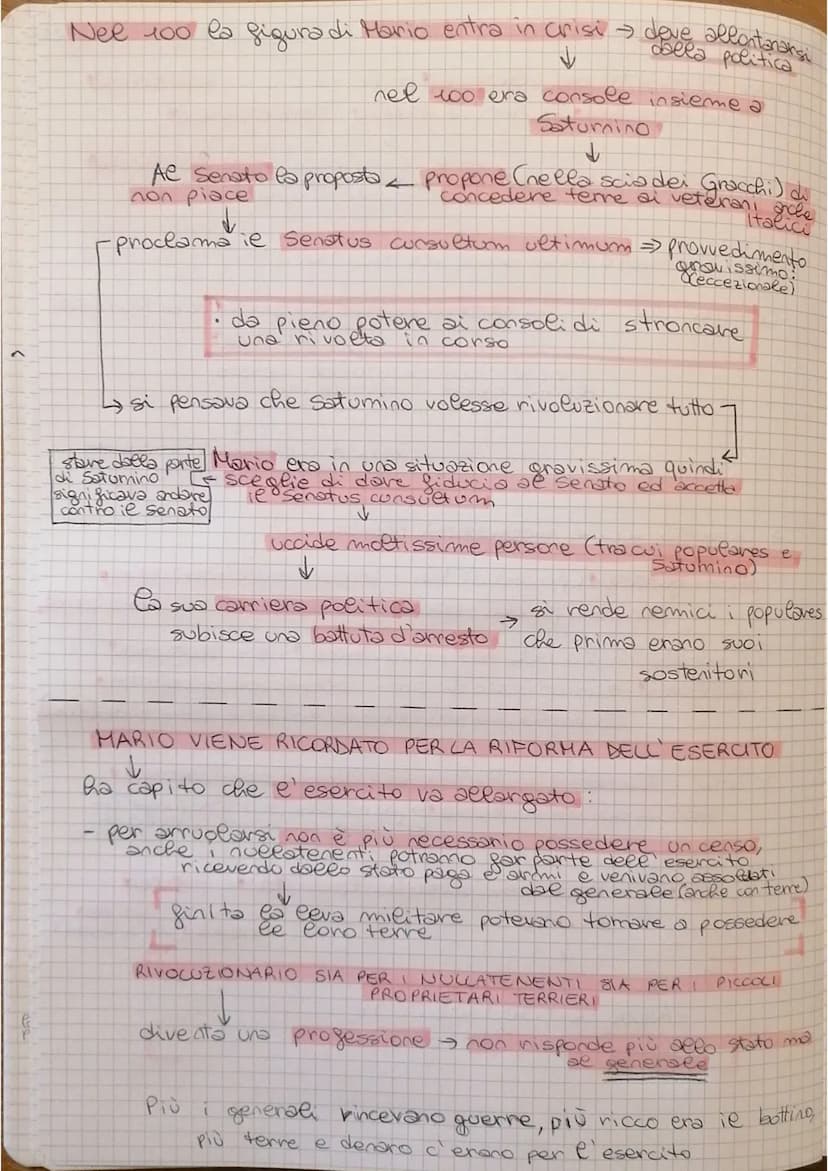 Nel 100 la figura di Mario entra in crisi → deve allontanarsi
dalla politica
↓
nel 100 era console insieme a
Saturnino
↓
Al Senato la proposta ← propone (nella scia dei Gracchi) di
non piace
concedere terre ai veterani, anche
Italici
↓
proclama il senatus consultum ultimum ⇒ provvedimento
gravissimo:
(eccezionale)
· da pieno potere ai consoli di stroncare
una rivolta in corso
→ si pensava che Saturnino volesse rivoluzionare tutto
stare dalla parte
di Saturnino ←
significava andare
contro il senato
Mario era in una situazione gravissima quindi
sceglie di dare fiducia al senato ed accetta
il senatus consultum
↓
uccide moltissime persone (tra cui populares e
Saturnino)
↓
la sua carriera politica
subisce una battuta d'arresto
→ si rende nemici i populares
che prima erano suoi
sostenitori
MARIO VIENE RICORDATO PER LA RIFORMA DELL'ESERCITO
↓
ha capito che l'esercito va allargato:
- per arruolarsi non è più necessario possedere un censo,
anche i nullatenenti potranno far parte dell'esercito
ricevendo dallo stato paga e armi e venivano assoldati
dal generale (anche con terre)
↓
finita la leva militare potevano tornare a possedere
le loro terre
RIVOLUZIONARIO SIA PER I NULLATENENTI SIA PER I PICCOLI
PROPRIETARI TERRIERI
↓
diventa una professione → non risponde più allo stato ma
al generale
Più i generali vincevano guerre, più ricco era il bottino,
più terre e denaro c'erano per l'esercito